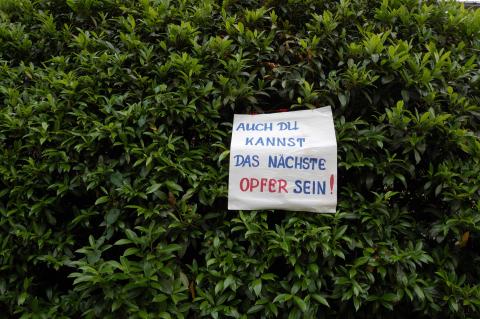 AUCH DU
KANNST
DAS NÄCHSTE
OPFER SEIN!